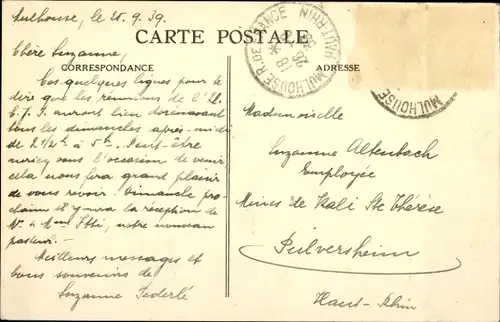 Mulhouse, le 25.9.39.
CARTE POSTALE
Chère Suzanne,
CORRESPONDANCE
Ces quelques lignes pour te
dire que les réunions de l'U.
C.J.F. auront lieu dorénavant
tous les dimanches après-midi
de 2 1/2h à 5h. Peut-être
auriez-vous l'occasion de venir
cela nous fera grand plaisir
de vous revoir. Dimanche pro-
chain il y aura la réception de
Mr & Mme, notre nouveau
pasteur.-
Meilleurs messages et
bons souvenirs de
Suzanne
MULHOUSE R. DE FRANCE
HAUT-RHIN
MULHOUSE
ADRESSE
Mademoiselle
Suzanne Altenbach
Employée
Mines de Kali Ste Thérèse
Pulversheim
Haut-Rhin